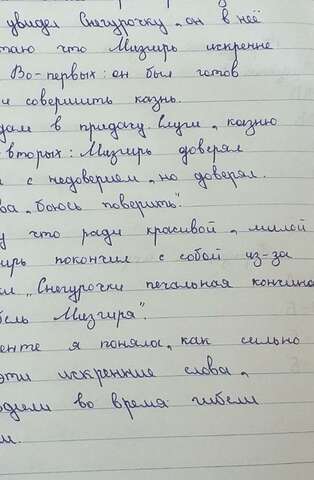 увидел Снегурочку, он в неё
таю что Мизгирь искренне
Во-первых: он был готов
и совершить казнь.
дам в придачу. Слуги, казню
вторых: Мизгирь доверял
с недоверием, но доверял.
ва „боюсь поверить".
у что ради красивой, милой
ирь покончил с собой из-за
„Снегурочки печальная кончина
бель Мизгиря".
енте я поняла, как сильно
эти искренние слова,
одили во время гибели
и.